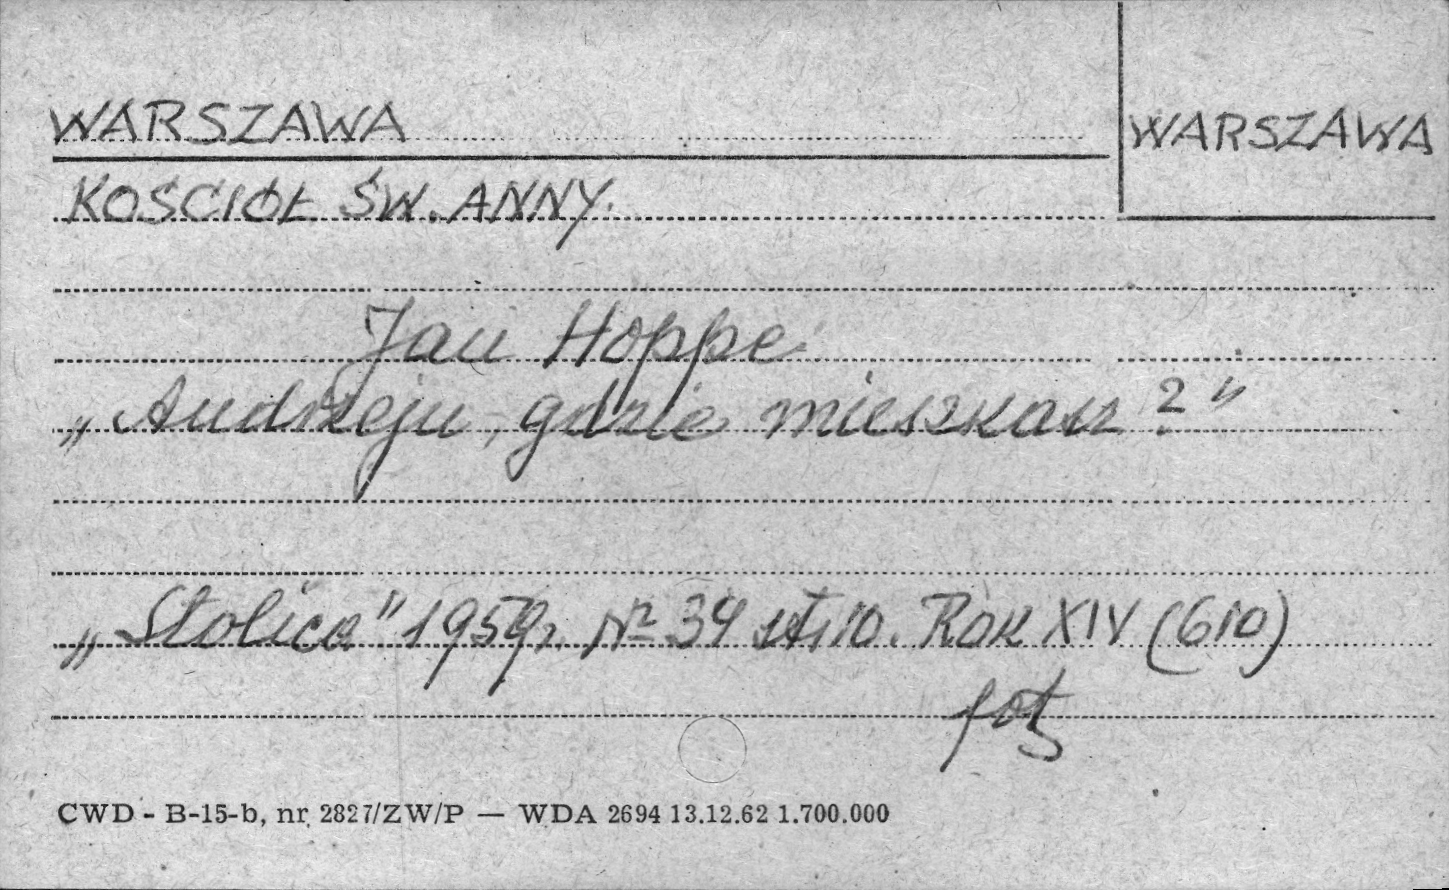 WARSZAWA
WARSZAWA
KOŚCIÓŁ ŚW. ANNY.
Jan Hoppe
„Andrzeju, gdzie mieszkasz?"
„Stolica" 1959r. № 34 str. 10. Rok XIV (610)
fot.
CWD - B-15-b, nr. 2827/ZW/P — WDA 2694 13.12.62 1.700.000